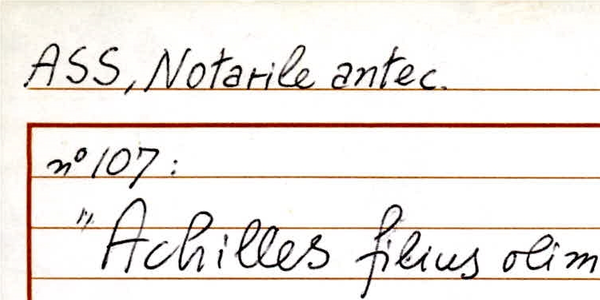 ASS, Notarile antec.
n° 107:
"Achilles filius olim